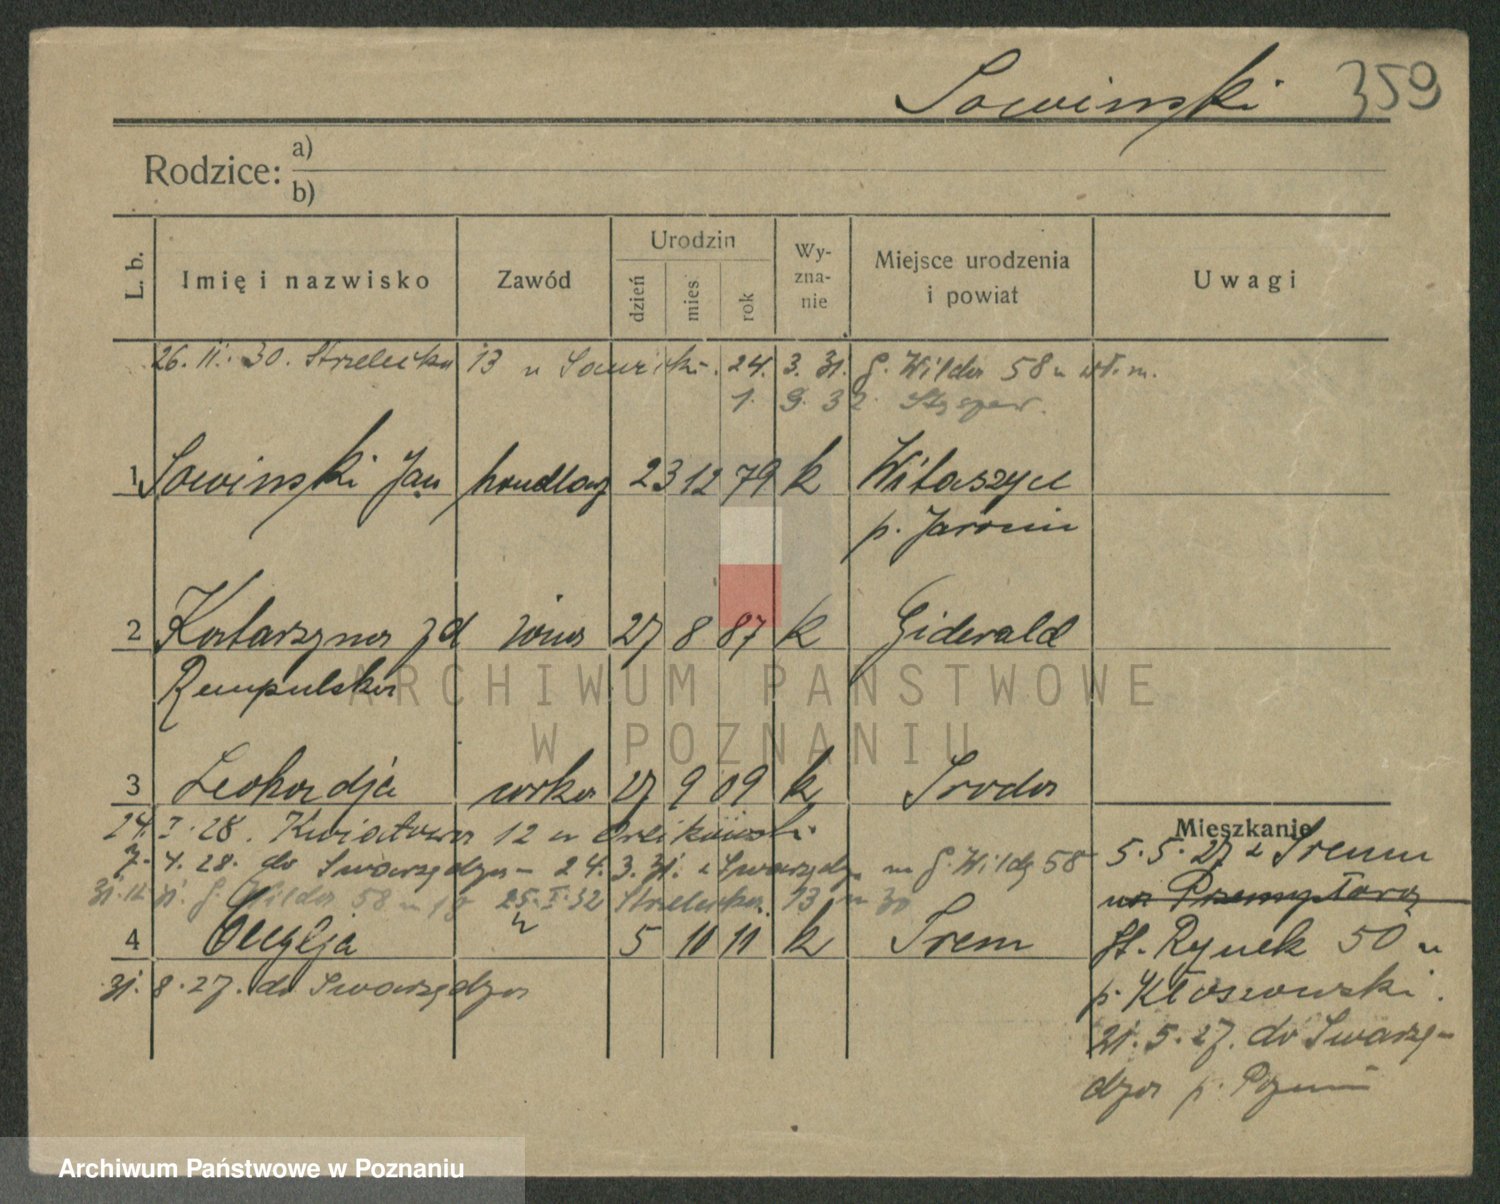 Sowinski 359
Rodzice: a)
b)
L. b. Imię i nazwisko Zawód Urodzin dzień mies rok Wy-zna-nie Miejsce urodzenia i powiat Uwagi
26. II. 30. Strzelecka 13 u 24. 3. 31. G. Wilda 58 u wł. m.
1. 9. 32.
1 Sowinski Jan handlarz 23 12 79 k Witaszyce
p. Jarocin
2 Katarzyna zd żona 27 8 87 k Giderald
Rempulska
3 Leokadja córka 27 9 09 k Sroda
24. I. 28. Kwiatowa 12 u
7. 4. 28. do Swarzędza - 24. 3. 31. z Swarzędza na G. Wildę 58
31. 12. G. Wilda 58 25. I. 32 Strzelecka 13
4 5 11 11 k Srem
31. 8. 27. do Swarzędza
Mieszkanie
5. 5. 27 z Sremu
na Przemysłową
St. Rynek 50 u
p. Kłosowski.
21. 5. 27. do Swarzę-
dza p.
ARCHIWUM PAŃSTWOWE
W POZNANIU
Archiwum Państwowe w Poznaniu